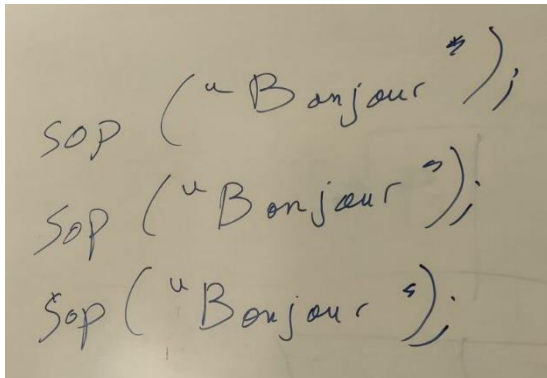 sop ("Bonjour");
Sop ("Bonjour");
Sop ("Bonjour");